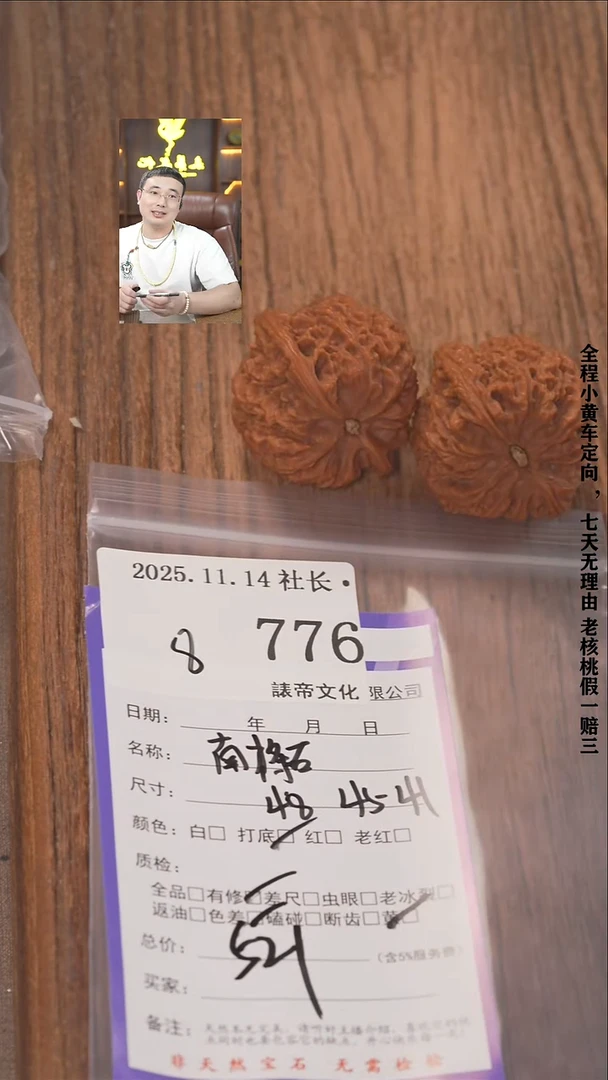 全程小黄车定向，七天无理由 老核桃假一赔三
2025.11.14 社长·
8 776
諘帝文化 限公司
日期： 年 月 日
名称：南将石
尺寸：48 45-41
颜色：白□ 打底□ 红□ 老红□
质检：
全品□有修□差尺□虫眼□老冰裂□
返油□色差□磕碰□断齿□黄□
总价：521 （含5%服务费）
买家：
备注：
非天然宝石 无需检验